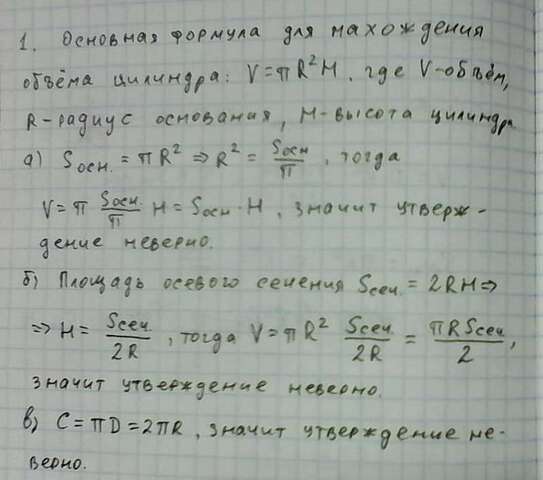 1. Основная формула для нахождения
объёма цилиндра: V=πR²H, где V-объём,
R-радиус основания, H-высота цилиндра
а) Sосн.=πR² ⇒ R² = Sосн/π, тогда
V=π Sосн./π H = Sосн·H, значит утверж-
дение неверно.
б) Площадь осевого сечения Sсеч.=2RH ⇒
⇒ H = Sсеч./2R, тогда V=πR² Sсеч./2R = πRSсеч./2,
значит утверждение неверно.
в) C=πD=2πR, значит утверждение не-
верно.